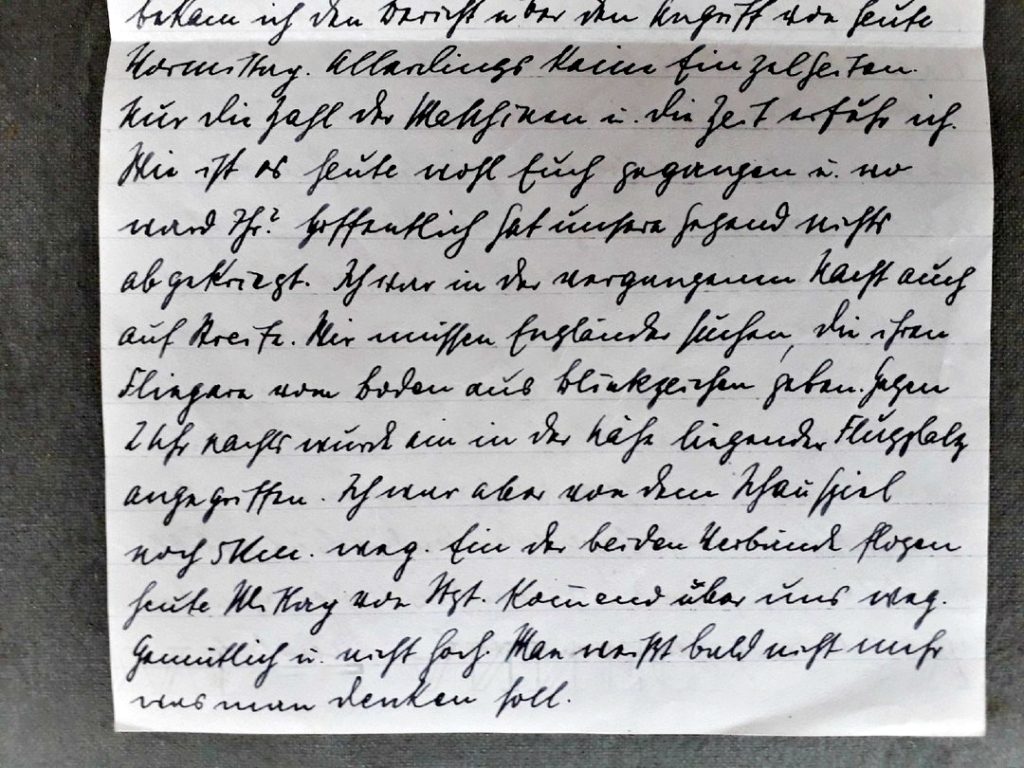 bekam ich den Bericht über den Angriff von heute
Vormittag. Allerdings keine Einzelheiten.
Nur die Zahl der Maschinen u. die Zeit erfuhr ich.
Wie ist es heute wohl Euch gegangen u. wo
ward Ihr? Hoffentlich hat unsere Gegend nichts
abgekriegt. Ich war in der vergangenen Nacht auch
auf Streife. Wir müssen Engländer suchen, die ihren
Fliegern vom Boden aus Blinkzeichen geben. Gegen
2 Uhr nachts wurde ein in der Nähe liegender Flugplatz
angegriffen. Ich war aber von dem Schauspiel
noch 5 Km. weg. Ein der beiden Verbände flogen
heute Mittag von Stgt. kom̄end über uns weg.
Gemütlich u. nicht hoch. Man weißt bald nicht mehr
was man denken soll.